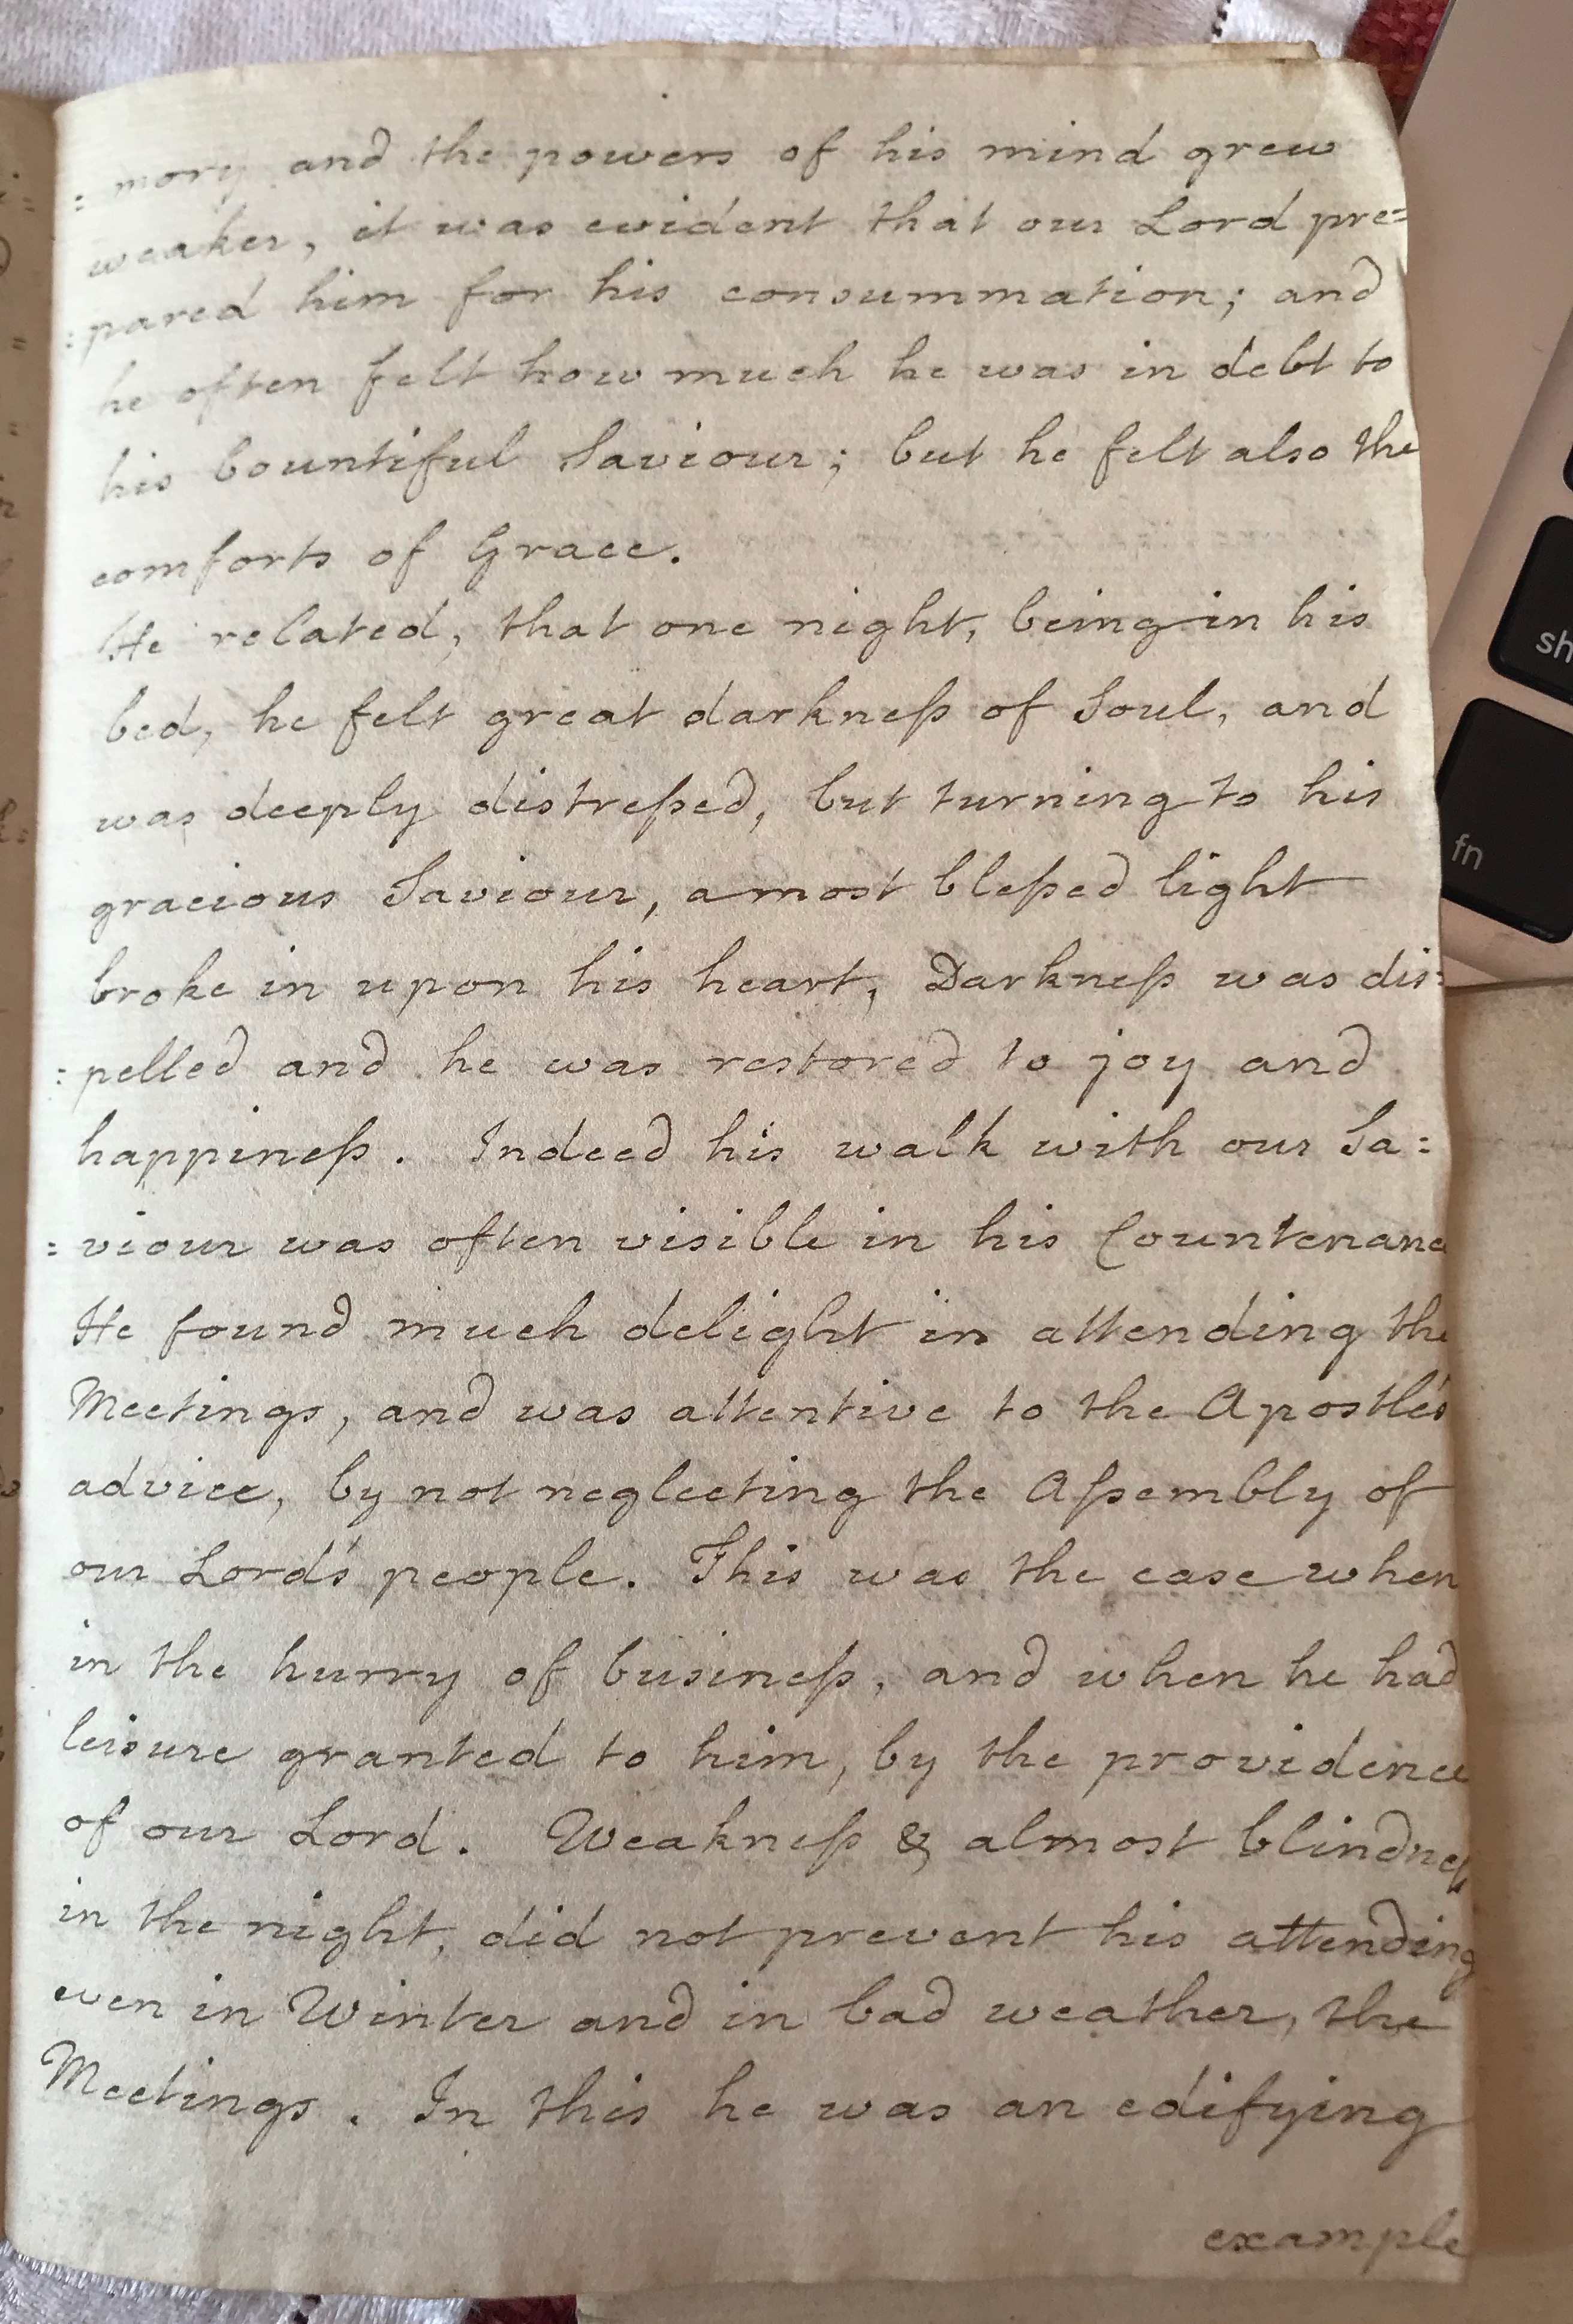 = mory and the powers of his mind grew
weaker, it was evident that our Lord pre=
=pared him for his consummation; and
he often felt how much he was in debt to
his bountiful Saviour; but he felt also the
comforts of Grace.
He related, that one night, being in his
bed, he felt great darkneſs of Soul, and
was deeply distreſsed, but turning to his
gracious Saviour, a most bleſsed light
broke in upon his heart, Darkneſs was dis=
=pelled and he was restored to joy and
happineſs. Indeed his walk with our Sa=
=viour was often visible in his Countenance
He found much delight in attending the
Meetings, and was attentive to the Apostle's
advice, by not neglecting the Aſsembly of
our Lord's people. This was the case when
in the hurry of busineſs, and when he had
leisure granted to him, by the providence
of our Lord. Weakneſs & almost blindneſs
in the night, did not prevent his attending
even in Winter and in bad weather, the
Meetings. In this he was an edifying
example
sh
fn